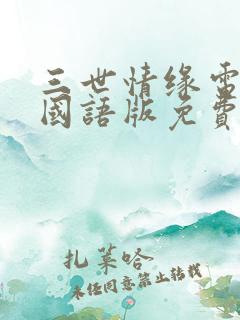 三世情缘電
國語版免費
扎莱哈
未经同意禁止转载